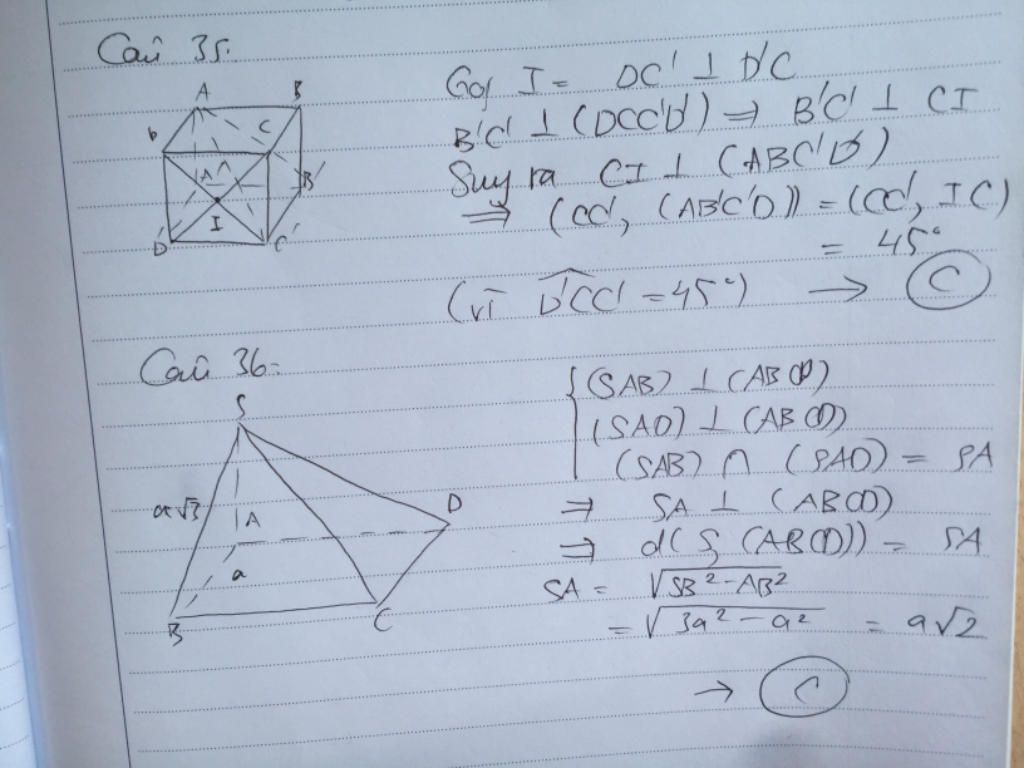 Câu 35:
A B
D C
A' B'
I
D' C'
Gọi I = DC' ⊥ D'C
B'C' ⊥ (DCC'D') ⇒ B'C' ⊥ CI
Suy ra CI ⊥ (ABC'D')
⇒ (CC', (AB'C'D)) = (CC', IC)
= 45°
(vì D'CC' = 45°) → C
Câu 36:
S
a√3
A D
a
B C
{(SAB) ⊥ (ABCD)
(SAD) ⊥ (ABCD)
(SAB) ∩ (SAD) = SA
⇒ SA ⊥ (ABCD)
⇒ d(S, (ABCD)) = SA
SA = √SB² - AB²
= √3a² - a² = a√2
→ C